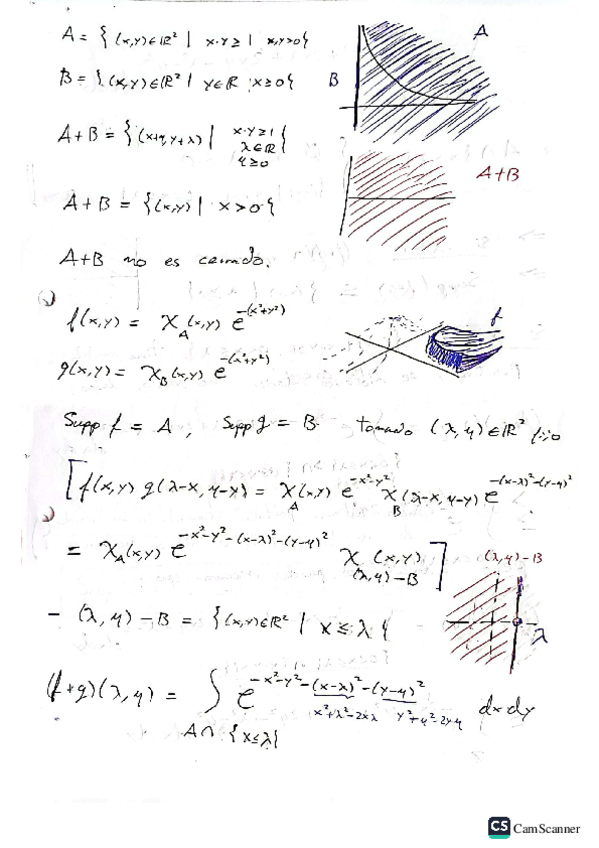 A = { (x,y)∈ℝ² | x·y ≥ 1 x,y>0 {
A
B = { (x,y)∈ℝ² | y∈ℝ x≥0 {
B
A+B = { (x+μ, y+λ) | x·y≥1
λ∈ℝ
μ≥0 {
A+B
A+B = { (x,y) | x>0 {
A+B no es cerrado.
f(x,y) = χ_A(x,y) e^{-(x²+y²)}
f
g(x,y) = χ_B(x,y) e^{-(x²+y²)}
Supp f = A , Supp g = B tomado (λ,μ)∈ℝ² fijo
[ f(x,y) g(λ-x, μ-y) = χ_A(x,y) e^{-x²-y²} χ_B(λ-x, μ-y) e^{-(x-λ)²-(y-μ)²}
= χ_A(x,y) e^{-x²-y²-(x-λ)²-(y-μ)²} χ_{(λ,μ)-B}(x,y) ]
(λ,μ)-B
- (λ,μ)-B = { (x,y)∈ℝ² | x≤λ {
λ
(f*g)(λ,μ) = ∫_{A∩{x≤λ{} e^{-x²-y²-(x-λ)²-(y-μ)²} dxdy
x²+λ²-2xλ y²+μ²-2yμ
CS CamScanner